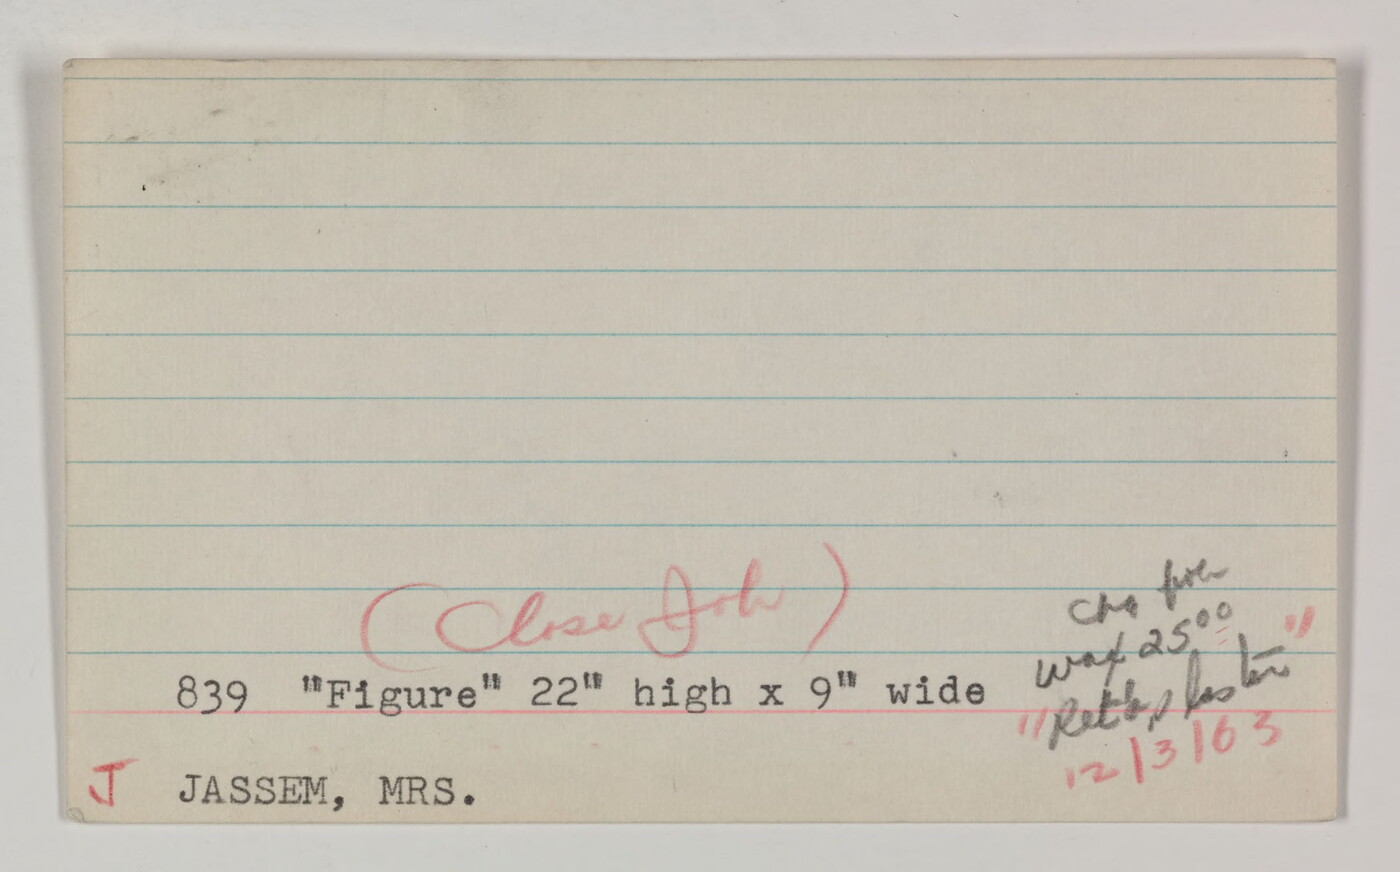 (Close Job)
Chg for
wax 25⁰⁰
839 "Figure" 22" high x 9" wide
"Retd plaster"
12/3/63
J JASSEM, MRS.